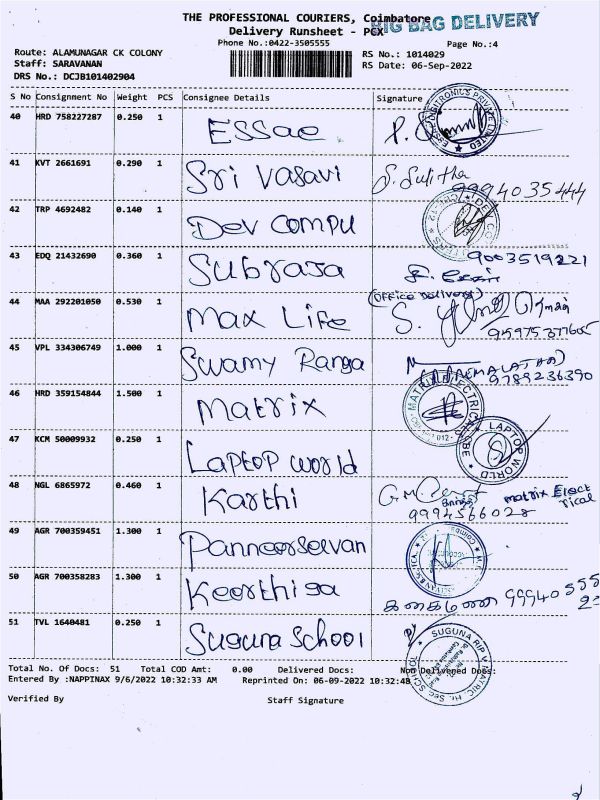 THE PROFESSIONAL COURIERS, Coimbatore
BIG BAG DELIVERY
Delivery Runsheet - PCX
Phone No.:0422-3505555
Page No.:4
Route: ALAMUNAGAR CK COLONY
RS No.: 1014029
Staff: SARAVANAN
RS Date: 06-Sep-2022
DRS No.: DCJB101402904
S No Consignment No Weight PCS Consignee Details Signature
40 HRD 758227287 0.250 1 Essae
41 KVT 2661691 0.290 1 Sri Vasavi S. Sulitha
9994035444
42 TRP 4692482 0.140 1 Dev Compu
43 EDQ 21432690 0.360 1 Subraja 9003519221
(Office Delivery)
44 MAA 292201050 0.530 1 Max Life
45 VPL 334306749 1.000 1 Swamy Ranga
9789236390
46 HRD 359154844 1.500 1 Matrix
MATRIX ELECTRICALS
47 KCM 50009932 0.250 1 Laptop world
LAPTOP WORLD
48 NGL 6865972 0.460 1 Karthi matrix Elect
rical
9994566028
49 AGR 700359451 1.300 1 Panneerselvan
50 AGR 700358283 1.300 1 Keerthiga
99940555
51 TVL 1640481 0.250 1 Suguna School
Total No. Of Docs: 51 Total COD Amt: 0.00 Delivered Docs: Non Delivered Docs:
Entered By :NAPPINAX 9/6/2022 10:32:33 AM Reprinted On: 06-09-2022 10:32:48
Verified By Staff Signature